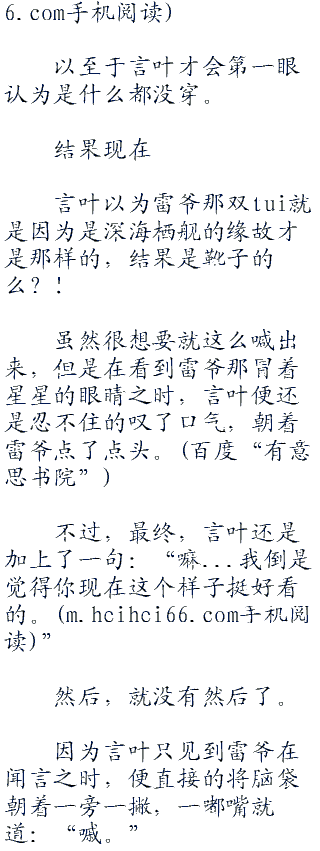 6.com手机阅读)
以至于言叶才会第一眼
认为是什么都没穿。
结果现在
言叶以为雷爷那双tui就
是因为是深海栖舰的缘故才
是那样的，结果是靴子的
么？！
虽然很想要就这么喊出
来，但是在看到雷爷那冒着
星星的眼睛之时，言叶便还
是忍不住的叹了口气，朝着
雷爷点了点头。(百度“有意
思书院”)
不过，最终，言叶还是
加上了一句：“嘛...我倒是
觉得你现在这个样子挺好看
的。(m.hcihci66.com手机阅
读)”
然后，就没有然后了。
因为言叶只见到雷爷在
闻言之时，便直接的将脑袋
朝着一旁一撇，一嘟嘴就
道：“嘁。”